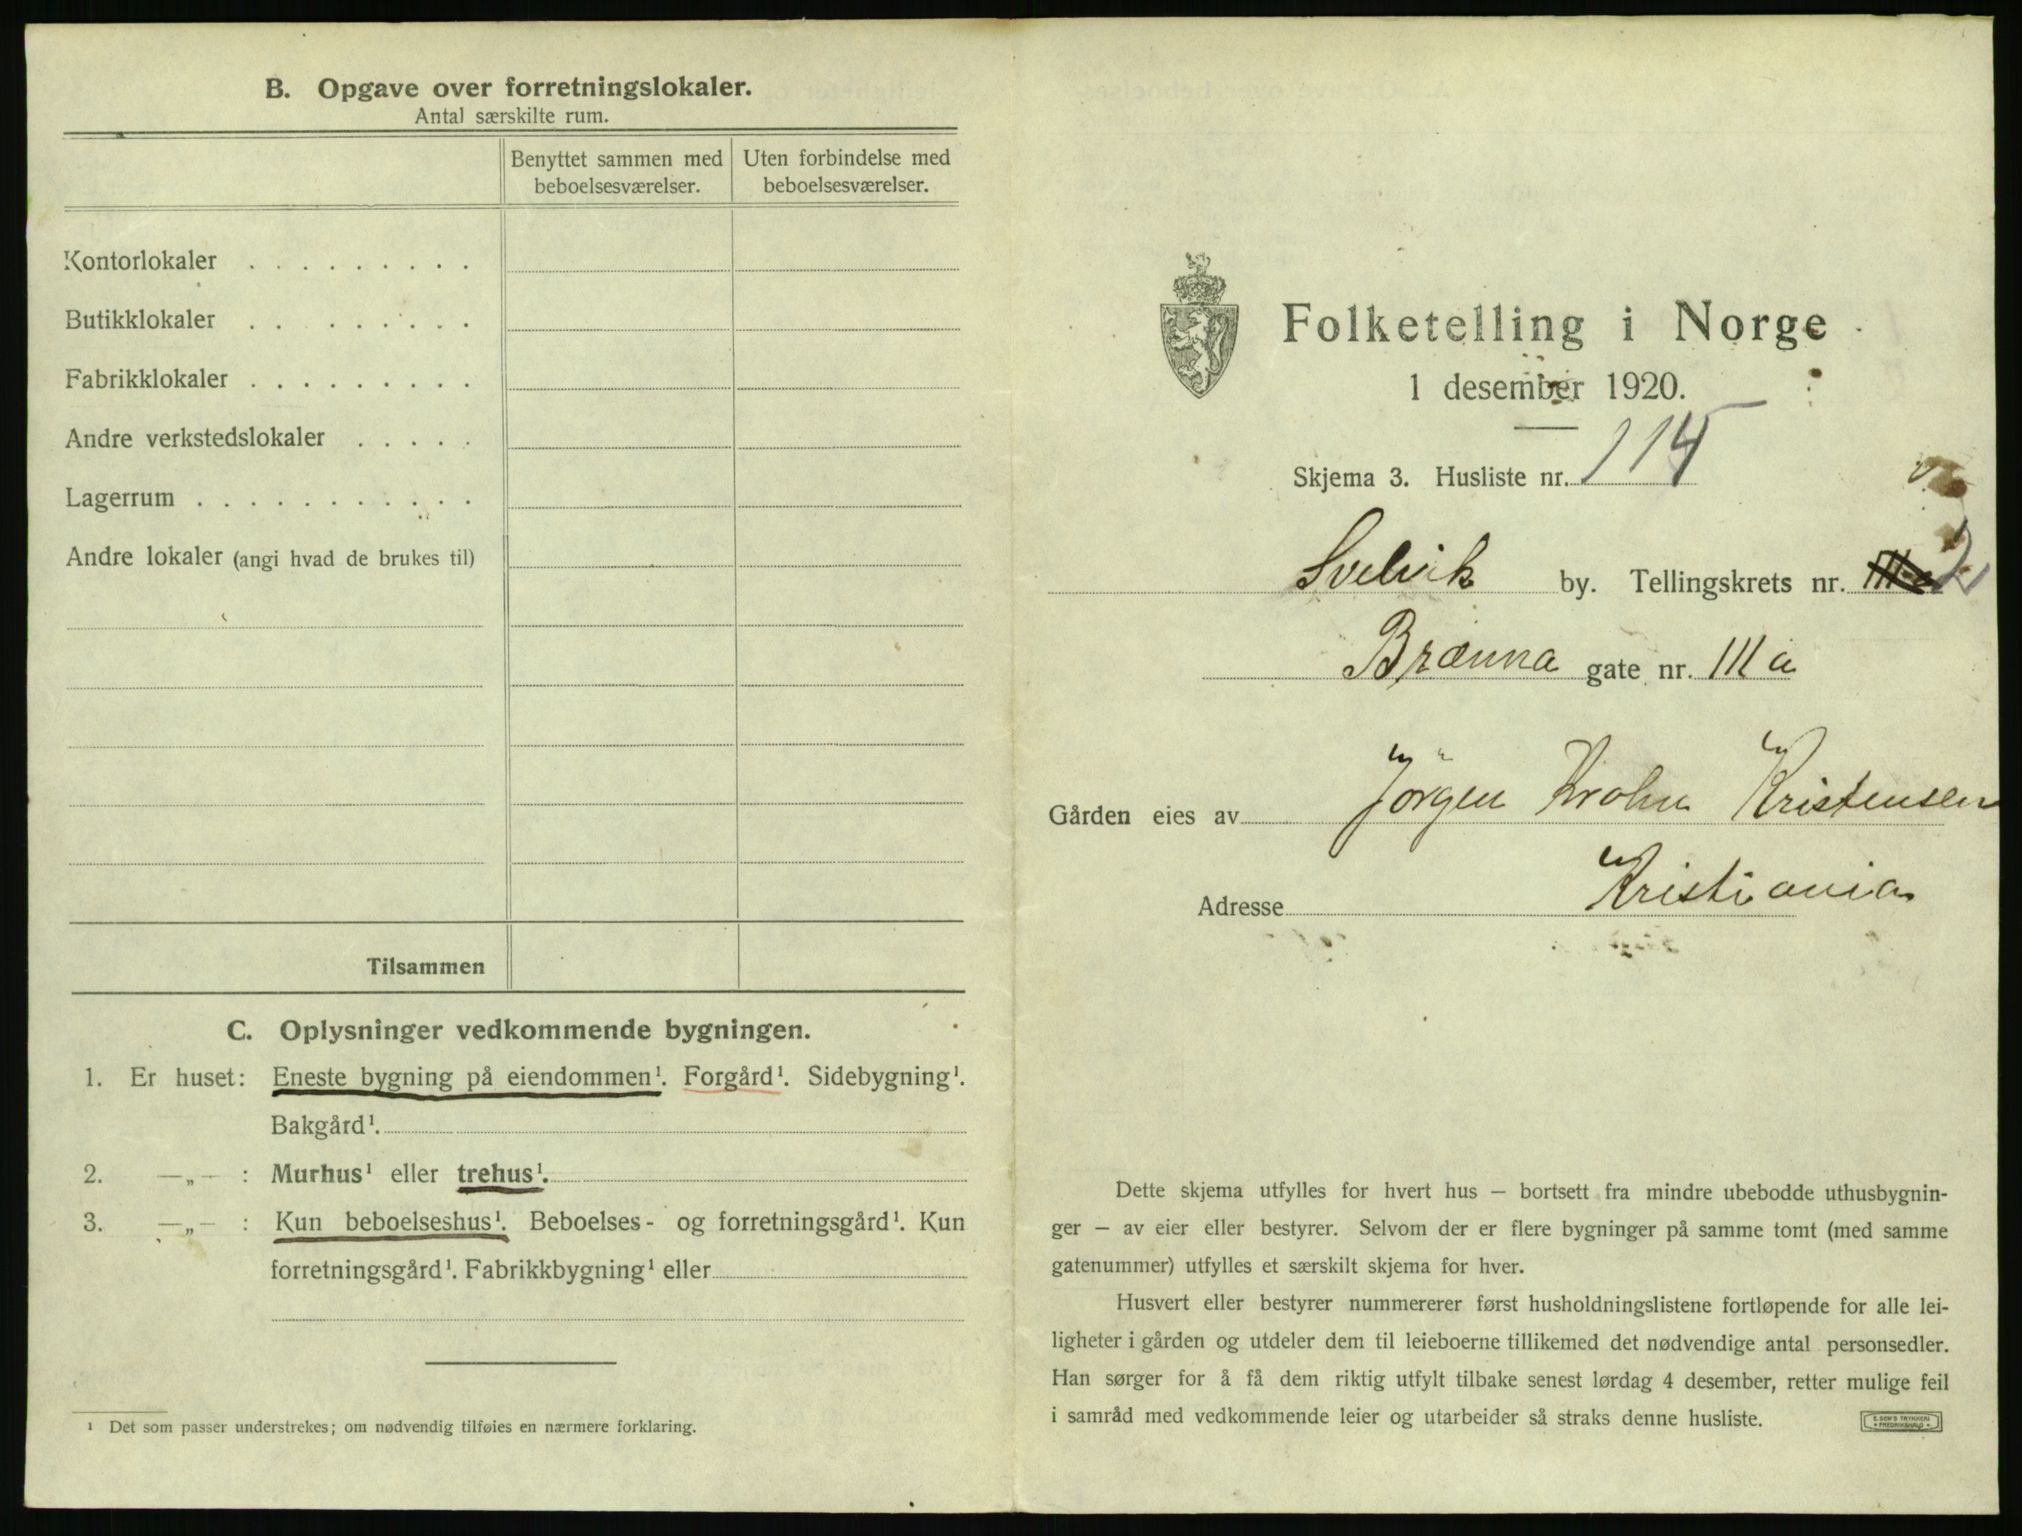 B. Opgave over forretningslokaler.
Antal særskilte rum.
Benyttet sammen med beboelsesværelser.
Uten forbindelse med beboelsesværelser.
Kontorlokaler . . . . . . . . .
Butikklokaler . . . . . . . .
Fabrikklokaler . . . . . . . . .
Andre verkstedslokaler . . . . .
Lagerrum . . . . . . . . . . .
Andre lokaler (angi hvad de brukes til)
Tilsammen
C. Oplysninger vedkommende bygningen.
1. Er huset: Eneste bygning på eiendommen¹. Forgård¹. Sidebygning¹.
Bakgård¹.
2. —„— : Murhus¹ eller trehus¹.
3. —„— : Kun beboelseshus¹. Beboelses- og forretningsgård¹. Kun
forretningsgård¹. Fabrikkbygning¹ eller
¹ Det som passer understrekes; om nødvendig tilføies en nærmere forklaring.
Folketelling i Norge
1 desember 1920.
Skjema 3. Husliste nr. 115
Svelvik by. Tellingskrets nr. 2
Brænna gate nr. 111 a
Gården eies av Jörgen Krohn Kristensen
Adresse Kristiania
Dette skjema utfylles for hvert hus — bortsett fra mindre ubebodde uthusbygnin-
ger — av eier eller bestyrer. Selvom der er flere bygninger på samme tomt (med samme
gatenummer) utfylles et særskilt skjema for hver.
Husvert eller bestyrer nummererer først husholdningslistene fortløpende for alle lei-
ligheter i gården og utdeler dem til leieboerne tillikemed det nødvendige antal personsedler.
Han sørger for å få dem riktig utfylt tilbake senest lørdag 4 desember, retter mulige feil
i samråd med vedkommende leier og utarbeider så straks denne husliste.
E. SEM'S TRYKKERI
FREDRIKSHALD